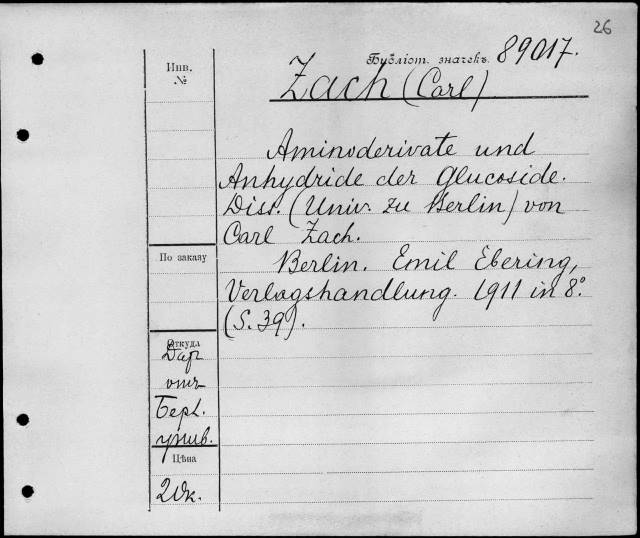 26
Библіот. значекъ. 89017.
Инв.
№
Zach (Carl)
Aminoderivate und
Anhydride der Glucoside.
Diss. (Univ. zu Berlin) von
Carl Zach.
По заказу
Berlin. Emil Ebering,
Verlagshandlung. 1911 in 8º.
(S. 39).
Откуда
Дар
отъ
Берл.
унив.
Цѣна
20к.